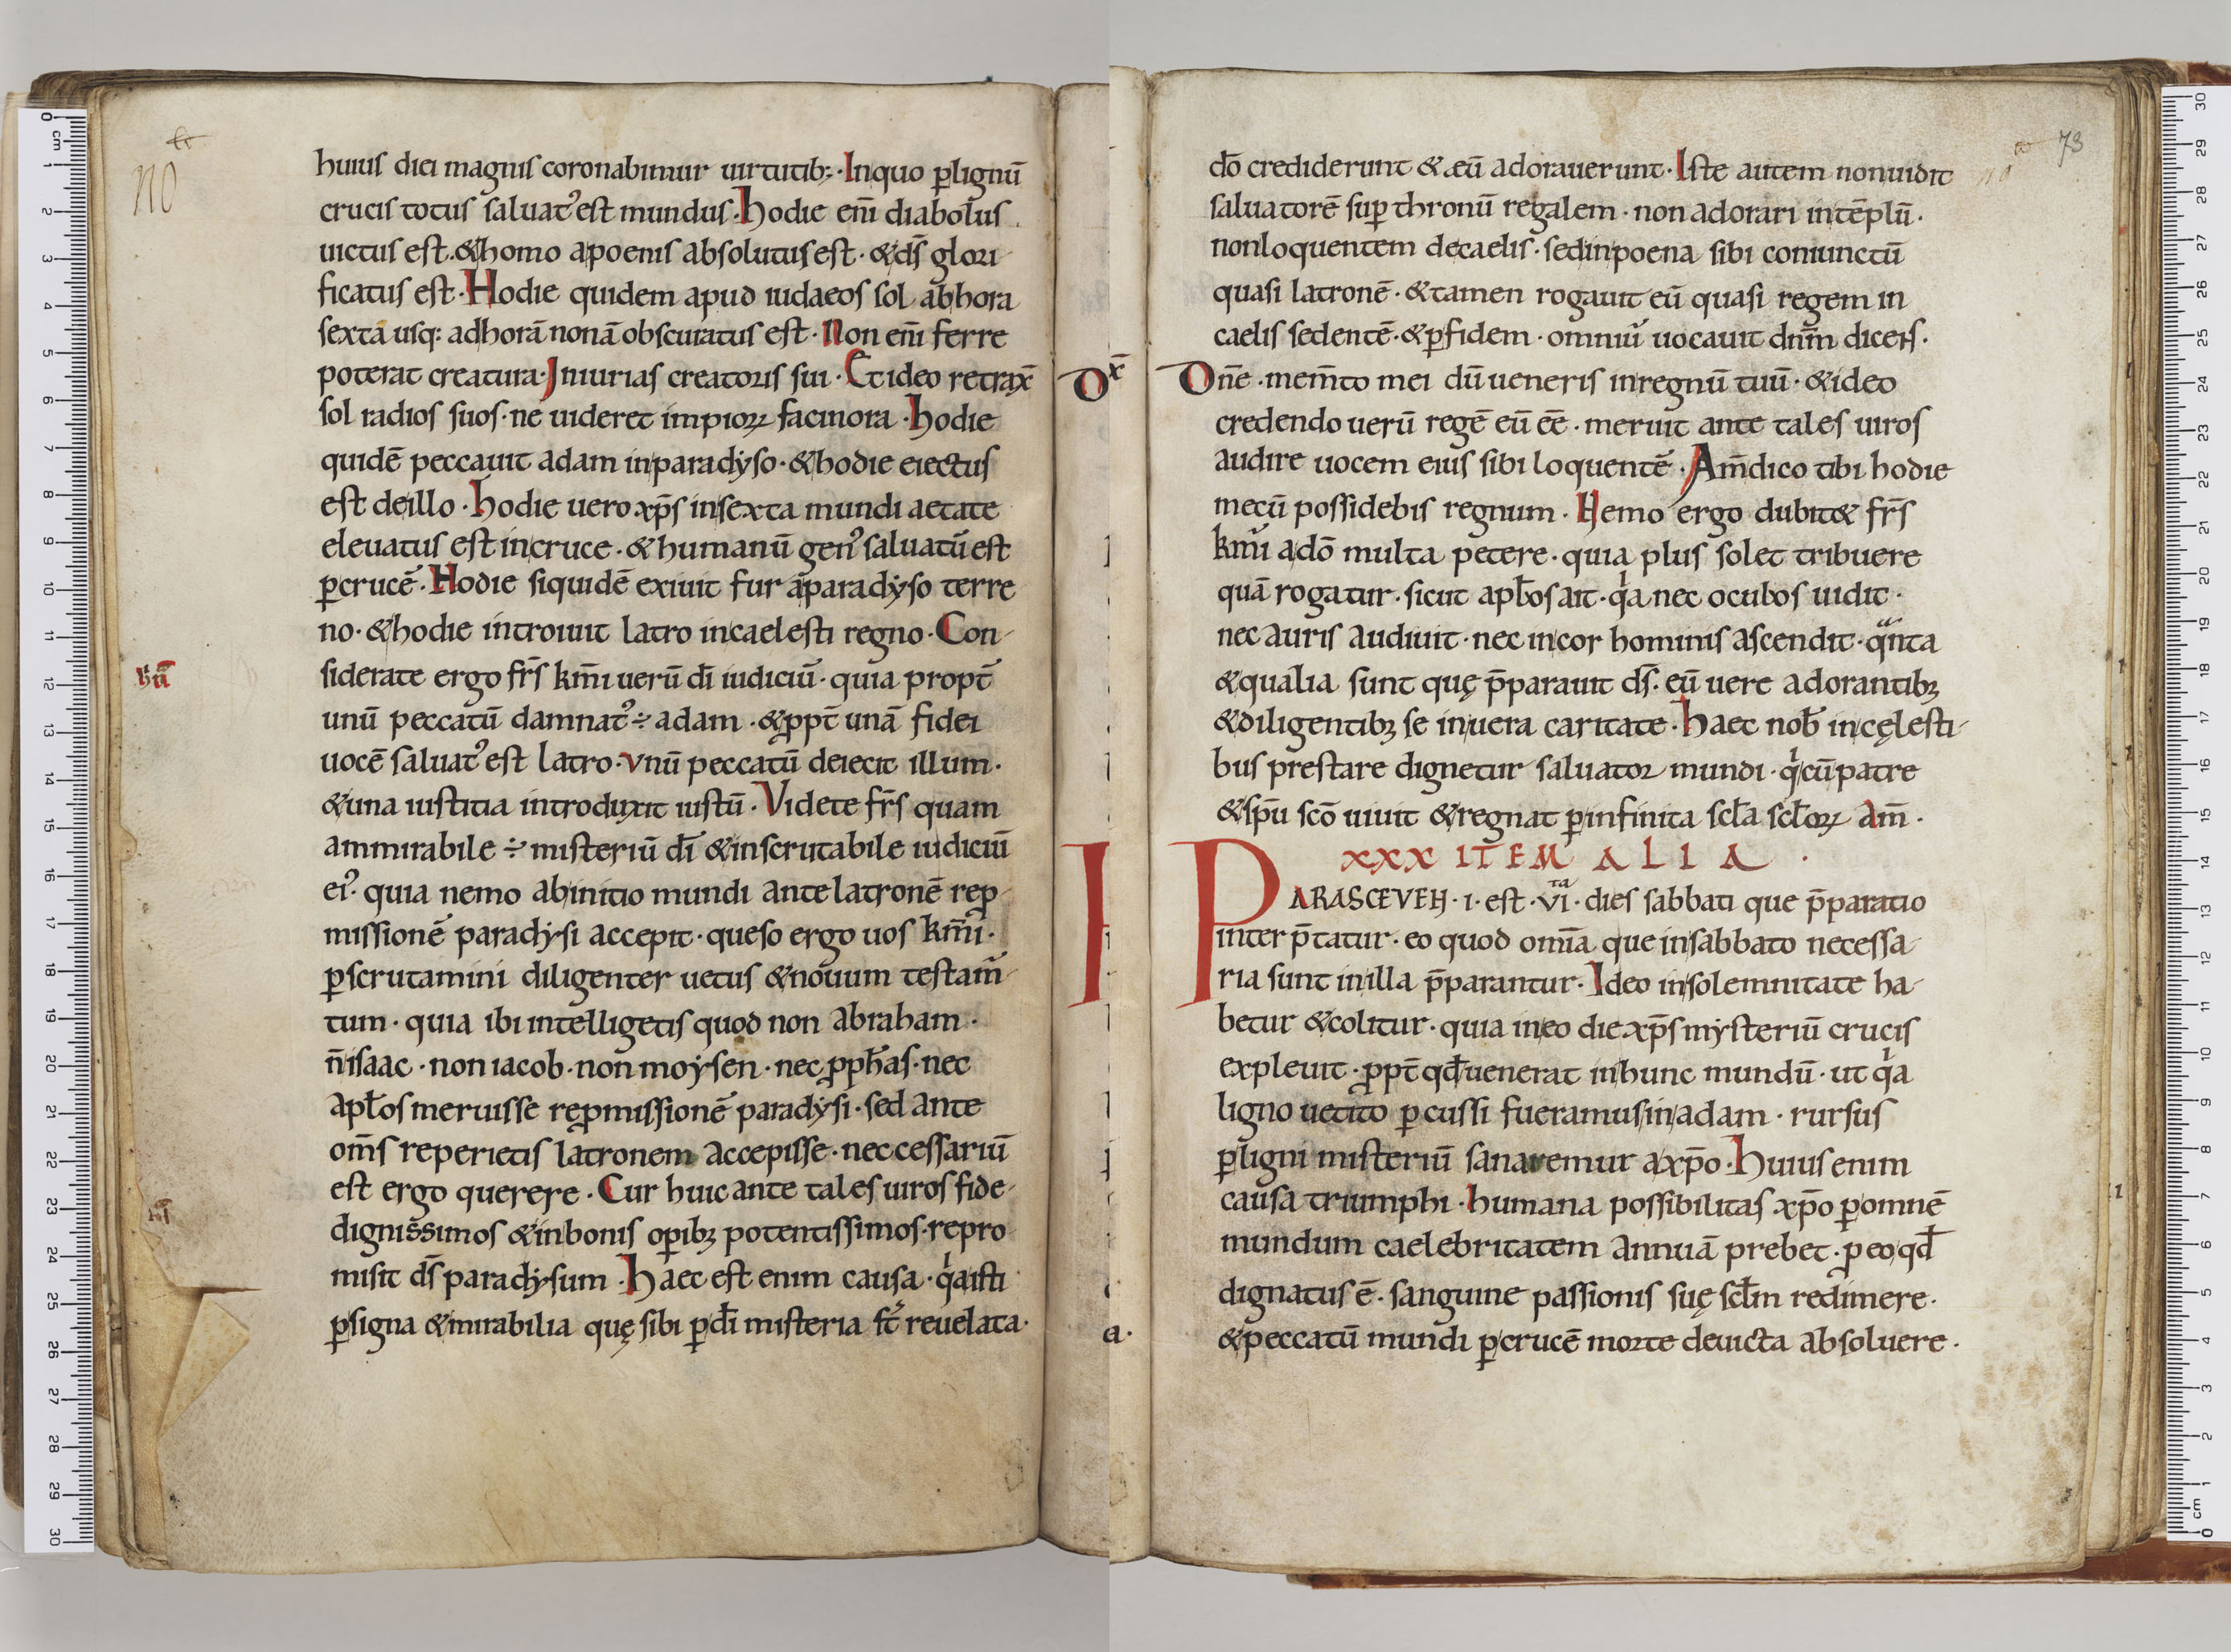 huius diei magnis coronabimur uirtutib; · Inquo ꝑlignū
crucis totus saluat᾽ est mundus · Hodie enī diabolus
uictus est · &homo apoenis absolutus est · &ds̄ glori-
ficatus est · Hodie quidem apud iudaeos sol abhora
sexta usq: adhorā nonā obscuratus est · Non enī ferre
poterat creatura · Iniurias creatoris sui · Et ideo retrax̄
sol radios suos · ne uideret impioꝝ facinora · Hodie
quidē peccauit adam inparadyso · &hodie eiectus
est deillo · Hodie uero xp̄s insexta mundi aetate
eleuatus est incruce · &humanū gen᾽ saluatū est
ꝑcrucē · Hodie siquidē exiuit fur aparadyso terre
no · &hodie introiuit latro incaelesti regno · Con-
siderate ergo fr̄s km̄i uerū dī iudiciū · quia propt̄
unū peccatū damnat᾽ ÷ adam · &ꝓpt̄ unā fidei
uocē saluat᾽ est latro · vnū peccatū deiecit illum ·
&una iustitia introduxit iustū · Videte fr̄s quam
ammirabile ÷ misteriū dī &inscrutabile iudiciū
ei᾽ · quia nemo abinitio mundi ante latronē reꝓ
missionē paradysi accepit · queso ergo uos km̄i ·
ꝑscrutamini diligenter uetus &nouum testam̄-
tum · quia ibi intelligetis quod non abraham ·
n̄ isaac · non iacob · non moysen · nec ꝓph̄as · nec
apl̄os meruisse reꝓmissionē paradysi · sed ante
om̄s reperietis latronem accepisse · neccessariū
est ergo querere · Cur huic ante tales uiros fide-
dignissimos &inbonis oꝑibꝫ potentissimos · repro
misit ds̄ paradysum · Haec est enim causa · qͥa isti
ꝑsigna &mirabilia quę sibi ꝑdī misteria st̄ reuelata ·
no
73
no
dō crediderunt &eū adorauerunt · Iste autem nonuidit
saluatorē suꝑ thronū regalem · non adorari intēplū ·
nonloquentem decaelis · sedinpoena sibi coniunctū
quasi latronē · &tamen rogauit eū quasi regem in
caelis sedentē · &ꝑfidem · omniū uocauit dnm̄ dicens ·
Dn̄e · mem̄to mei dū ueneris inregnū tuū · &ideo
credendo uerū regē eū eē · meruit ante tales uiros
audire uocem eius sibi loquentē · Am̄dico tibi hodie
mecū possidebis regnum · Nemo ergo dubit& fr̄s
km̄i adō multa petere · quia plus solet tribuere
quā rogatur · sicut apl̄os ait · qͥa nec oculos uidit ·
nec auris audiuit · nec incor hominis ascendit · qͣnta
&qualia sunt quę p̄parauit ds̄ · eū uere adorantibꝫ
&diligentibꝫ se inuera caritate · Haec nob̄ incęlesti-
bus prestare dignetur saluator mundi · qͥ cūpatre
&spū scō uiuit &regnat ꝑinfinita scl̄a scl̄oꝝ Am̄ ·
XXX ITEM ALIA ·
PARASCEVEH · i · est · VIta · dies sabbati que p̄paratio
inter p̄tatur · eo quod omīa que insabbato necessa-
ria sunt inilla p̄parantur · Ideo insolemnitate ha-
betur &colitur · quia ineo die xp̄s mysteriū crucis
expleuit · ꝓpt̄ qd̄ uenerat inhunc mundū · ut qͥa
ligno uetito ꝑcussi fueramus inadam · rursus
ꝑligni misteriū sanaremur axp̄o · Huius enim
causa triumphi · humana possibilitas xp̄o ꝑomnē
mundum caelebritatem annuā prebet · ꝑ eo qd̄
dignatus ē · sanguine passionis suę scl̄m redimere ·
&peccatū mundi ꝑcrucē morte deuicta absoluere ·